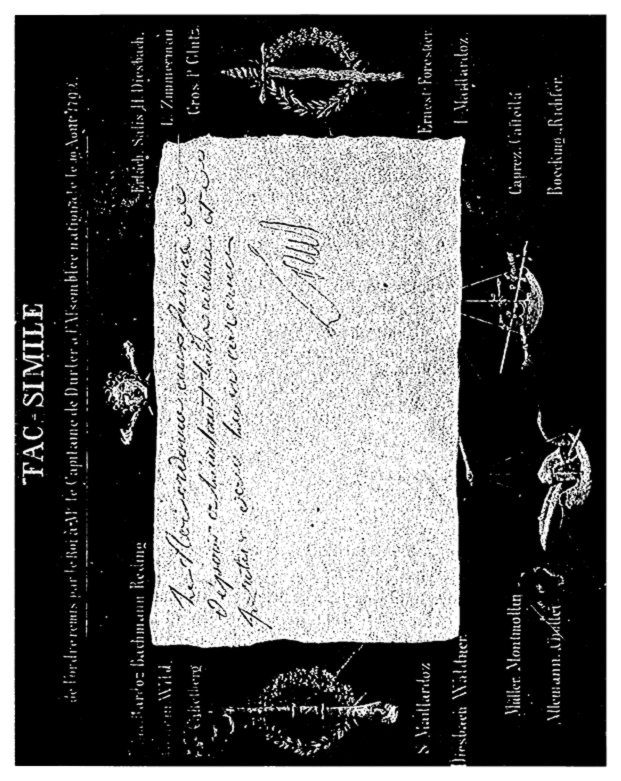 FAC-SIMILE
de l'ordre remis par le Roi à Mr. le Capitaine de Durler à l'Assemblée nationale le 10 Août 1792.
Bachmann Reding
Salis H. Diesbach,
Wild,
L. Zimmerman
Gros. P. Glutz.
Le Roi ordonne aux Suisses de
déposer à l'instant leurs armes et de
se retirer dans leurs casernes
Louis
S. Maillardoz
Ernest Forestier
Diesbach Waldner
I. Maillardoz
Müller, Montmollin
Caprez, Castelli
Allemann,
Boecking, Richter.